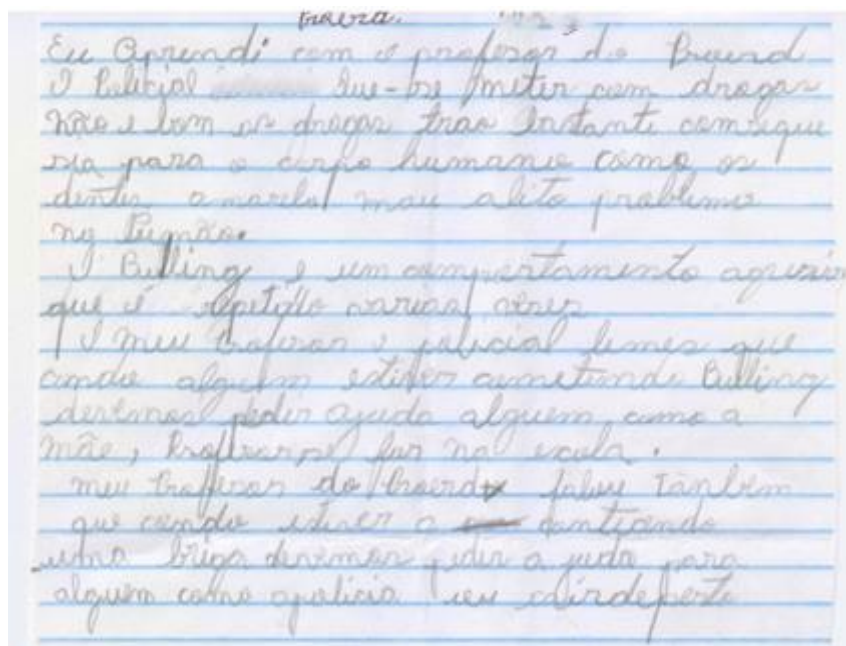 Proerd.
Eu Aprendi com o profesor do Proerd
O Policial que-se meter com drogas
não e bom as drogas tras bastante comseque
sia para o corpo humano como os
dentes amarelo mau alito problema
no Pumão.
O Bulling é um compartamento agresivo
que é repetido varias vezes
O meu profesor e policial que
cando alguem estiver cometendo Bulling
devemos pedir ajuda alguem como a
mãe, Profesor se for na escola.
meu Profesor do Proerd falou Tanbem
que cando estiver a contecendo
uma briga devemos pedir a juda para
alguem como apolicia ou